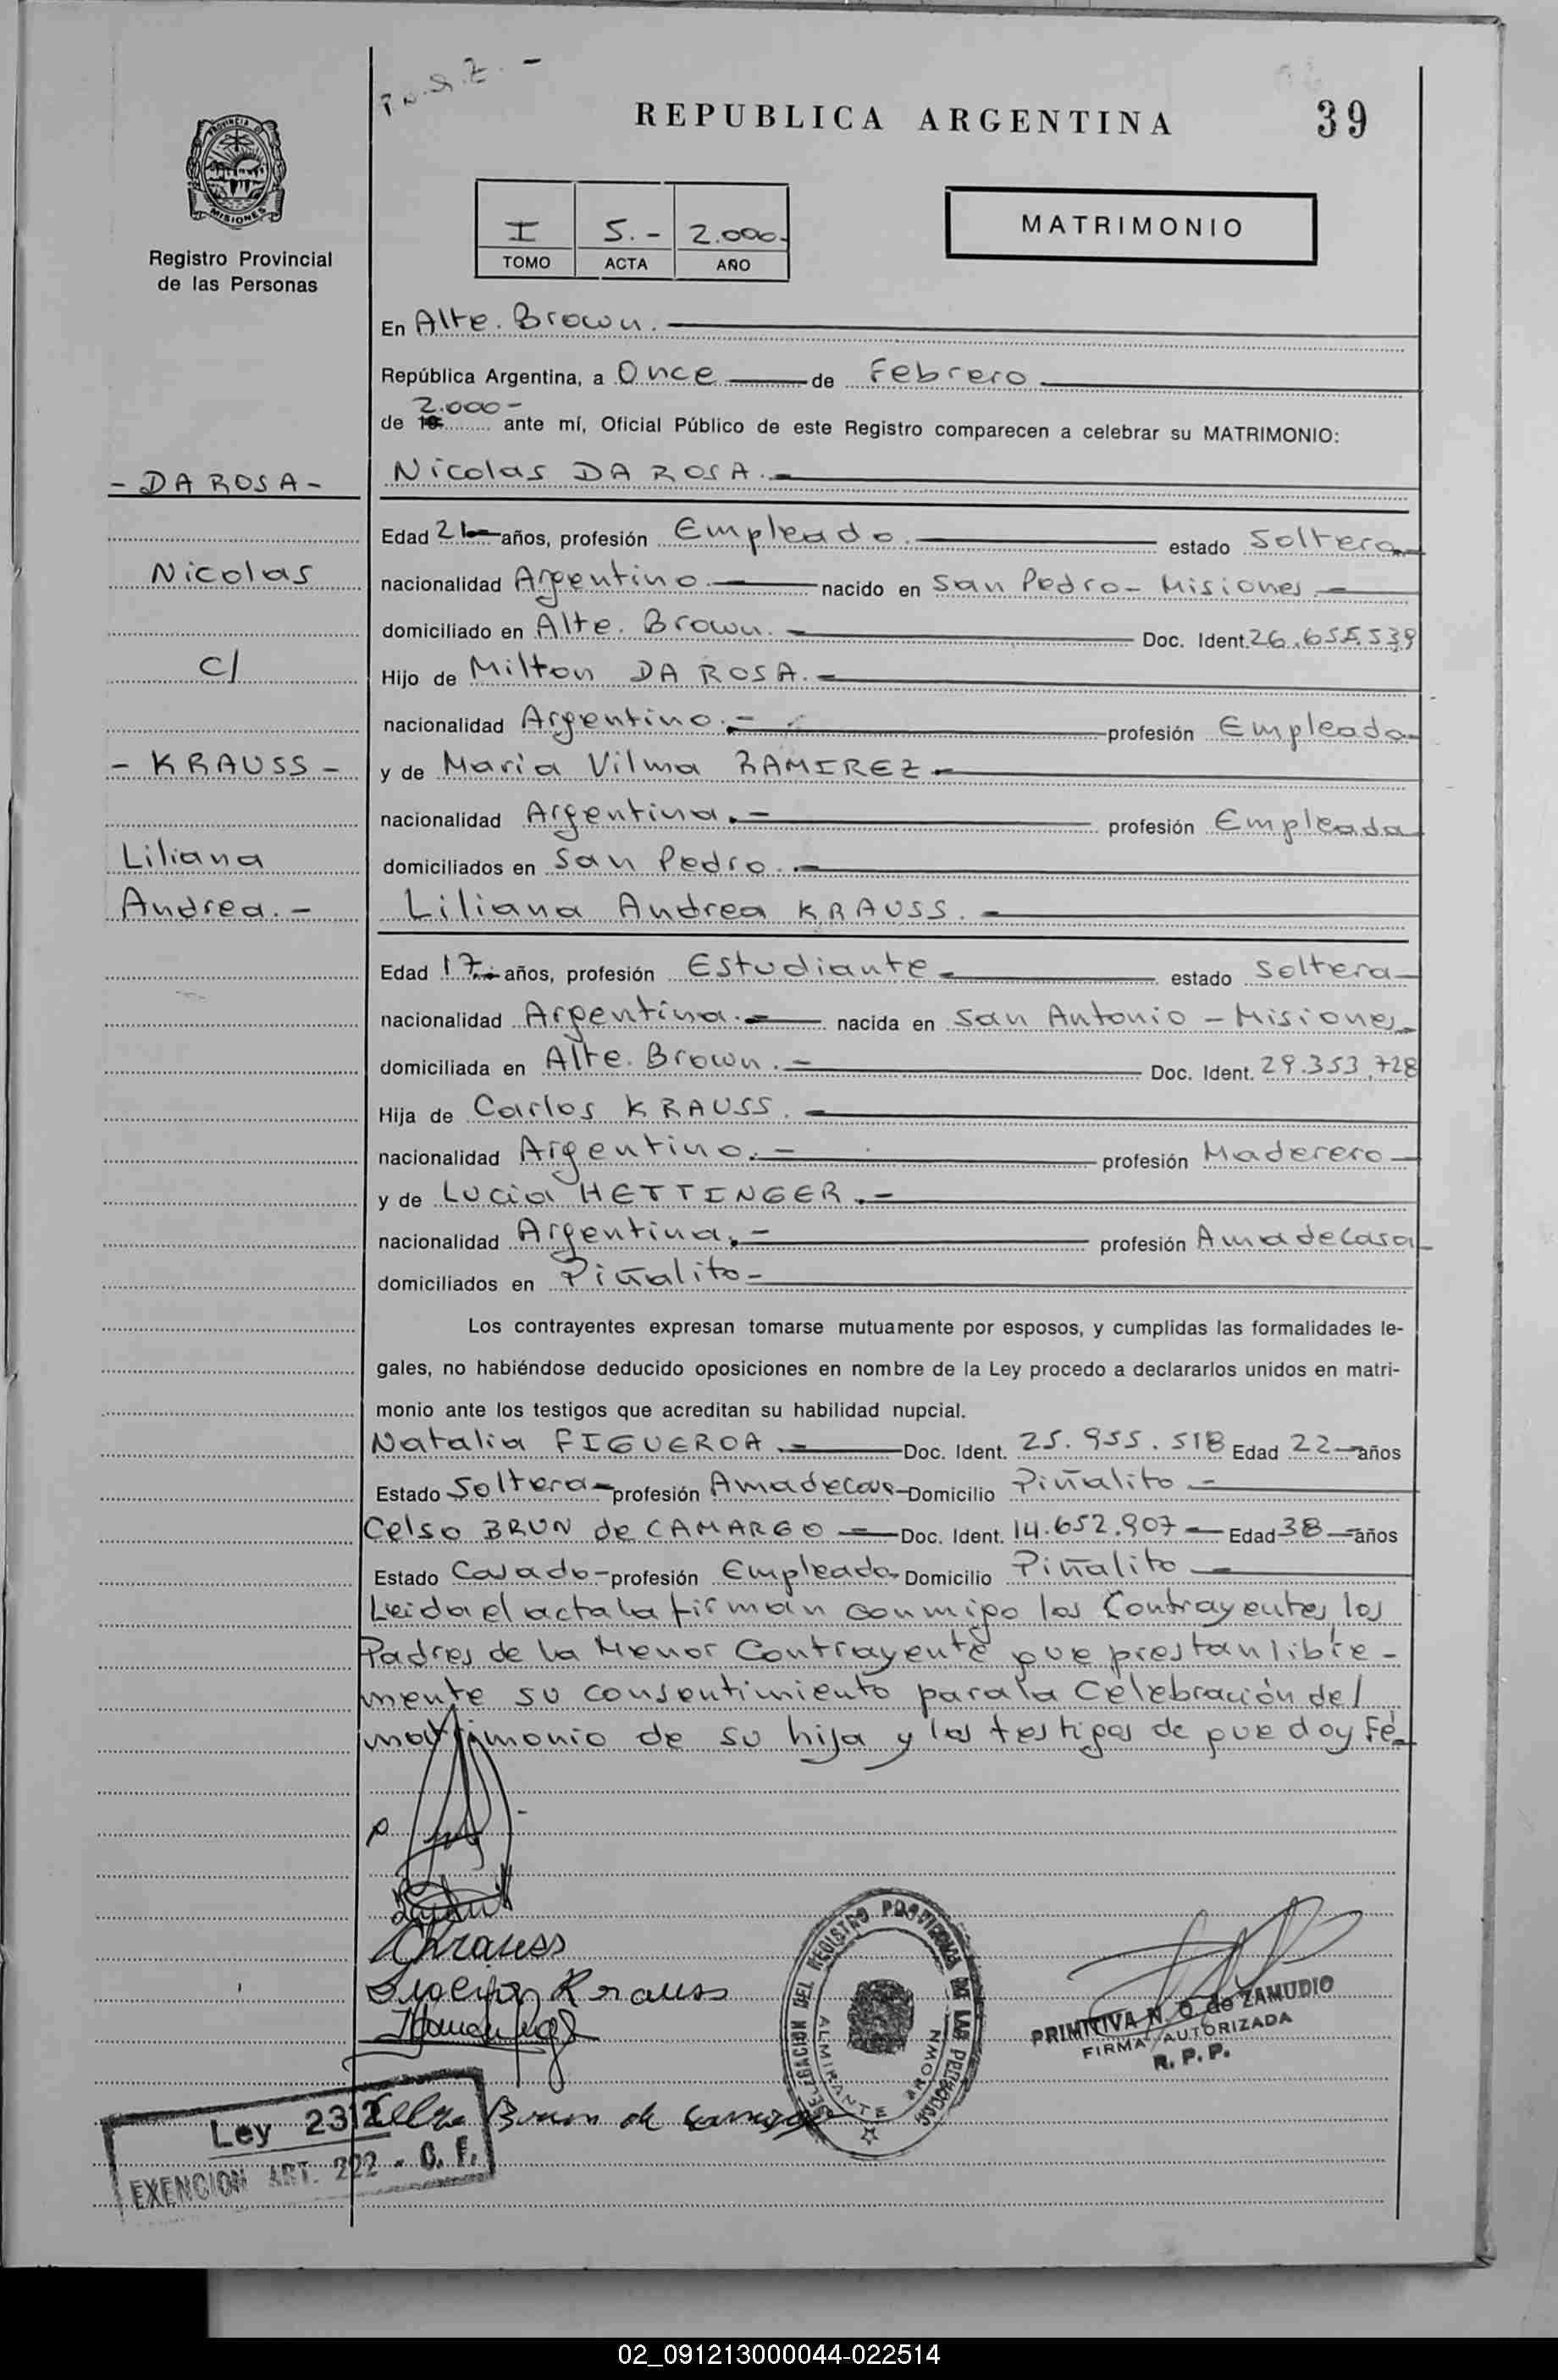 REPUBLICA ARGENTINA
39
PROVINCIA DE
MISIONES
Registro Provincial
de las Personas
I 5.- 2.000-
TOMO ACTA AÑO
MATRIMONIO
En Alte. Brown.
República Argentina, a Once de Febrero
2.000-
de 19 ante mí, Oficial Público de este Registro comparecen a celebrar su MATRIMONIO:
- DA ROSA -
Nicolas DA ROSA.-
Edad 21- años, profesión Empleado. estado Soltero
Nicolas
nacionalidad Argentino nacido en San Pedro - Misiones
domiciliado en Alte. Brown. - Doc. Ident. 26.655.539
C/
Hijo de Milton DA ROSA. -
nacionalidad Argentino.- profesión Empleado
- KRAUSS -
y de Maria Vilma RAMIREZ -
nacionalidad Argentina.- profesión Empleada
Liliana
domiciliados en San Pedro. -
Andrea. -
Liliana Andrea KRAUSS. -
Edad 17.- años, profesión Estudiante - estado Soltera
nacionalidad Argentina.- nacida en San Antonio - Misiones
domiciliada en Alte. Brown. - Doc. Ident. 29.353.728
Hija de Carlos KRAUSS. -
nacionalidad Argentino. - profesión Maderero
y de Lucia HETTINGER.-
nacionalidad Argentina.- profesión Ama de Casa
domiciliados en Piñalito -
Los contrayentes expresan tomarse mutuamente por esposos, y cumplidas las formalidades le-
gales, no habiéndose deducido oposiciones en nombre de la Ley procedo a declararlos unidos en matri-
monio ante los testigos que acreditan su habilidad nupcial.
Natalia FIGUEROA.- Doc. Ident. 25.955.518 Edad 22 años
Estado Soltera - profesión Ama de casa - Domicilio Piñalito -
Celso BRUN de CAMARGO - Doc. Ident. 14.652.907 - Edad 38 - años
Estado Casado - profesión Empleado. Domicilio Piñalito -
Leida el acta la firman conmigo los Contrayentes los
Padres de la Menor Contrayente que prestan libre -
mente su consentimiento para la Celebración del
matrimonio de su hija y los testigos de que doy Fé.
Krauss
Krauss
DELEGACION DEL REGISTRO PROVINCIAL DE LAS PERSONAS
ALMIRANTE BROWN
PRIMITIVA N. O. de ZAMUDIO
FIRMA AUTORIZADA
R. P. P.
Celso Brun de Camargo
Ley 2312
EXENCION ART. 222 - C. F.
02_091213000044-022514